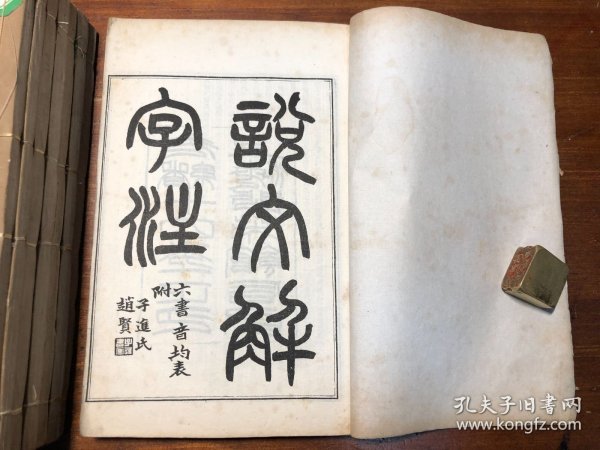 說文解
字注
六書音均表
附
子進氏
趙賢
孔夫子旧书网
www.kongfz.com